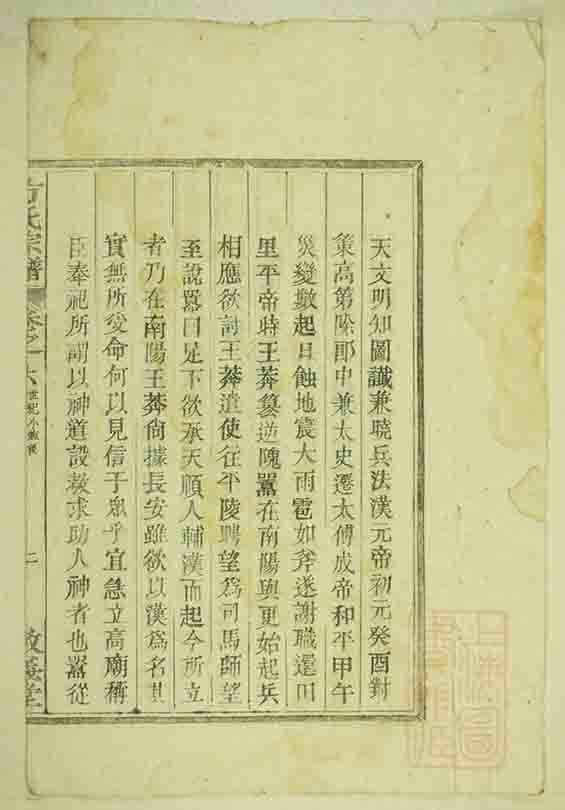 天文明知圖讖兼曉兵法漢元帝初元癸酉對
策高第除郎中兼太史遷太傅成帝和平甲午
災變數起日蝕地震大雨雹如斧遂謝職還田
里平帝時王莽篡逆隗囂在南陽與更始起兵
相應欲討王莽遣使往平陵聘望爲司馬師望
至說囂曰足下欲承天順人輔漢而起今所立
者乃在南陽王莽尙據長安雖欲以漢爲名其
實無所受命何以見信于眾乎宜急立高廟稱
臣奉祀所謂以神道設教求助人神者也囂從
方氏宗譜
卷之一
世紀小敘
二
敦善堂
上海圖書館藏